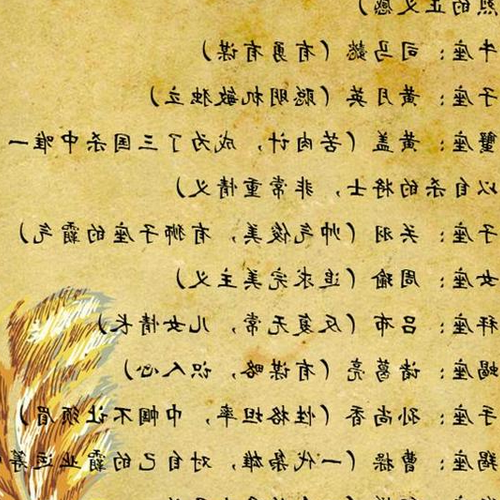 烈的正义感）
牛座：司马懿（有勇有谋）
子座：黄月英（聪明机敏独立）
蟹座：黄盖（苦肉计，成为了三国杀中唯一
以自杀的将士，非常重情义）
子座：关羽（帅气俊美，有狮子座的霸气）
女座：周瑜（追求完美主义）
秤座：吕布（反复无常，儿女情长）
蝎座：诸葛亮（有谋略，识人心）
手座：孙尚香（性格坦率，巾帼不让须眉）
羯座：曹操（一代枭雄，对自己的霸业运筹